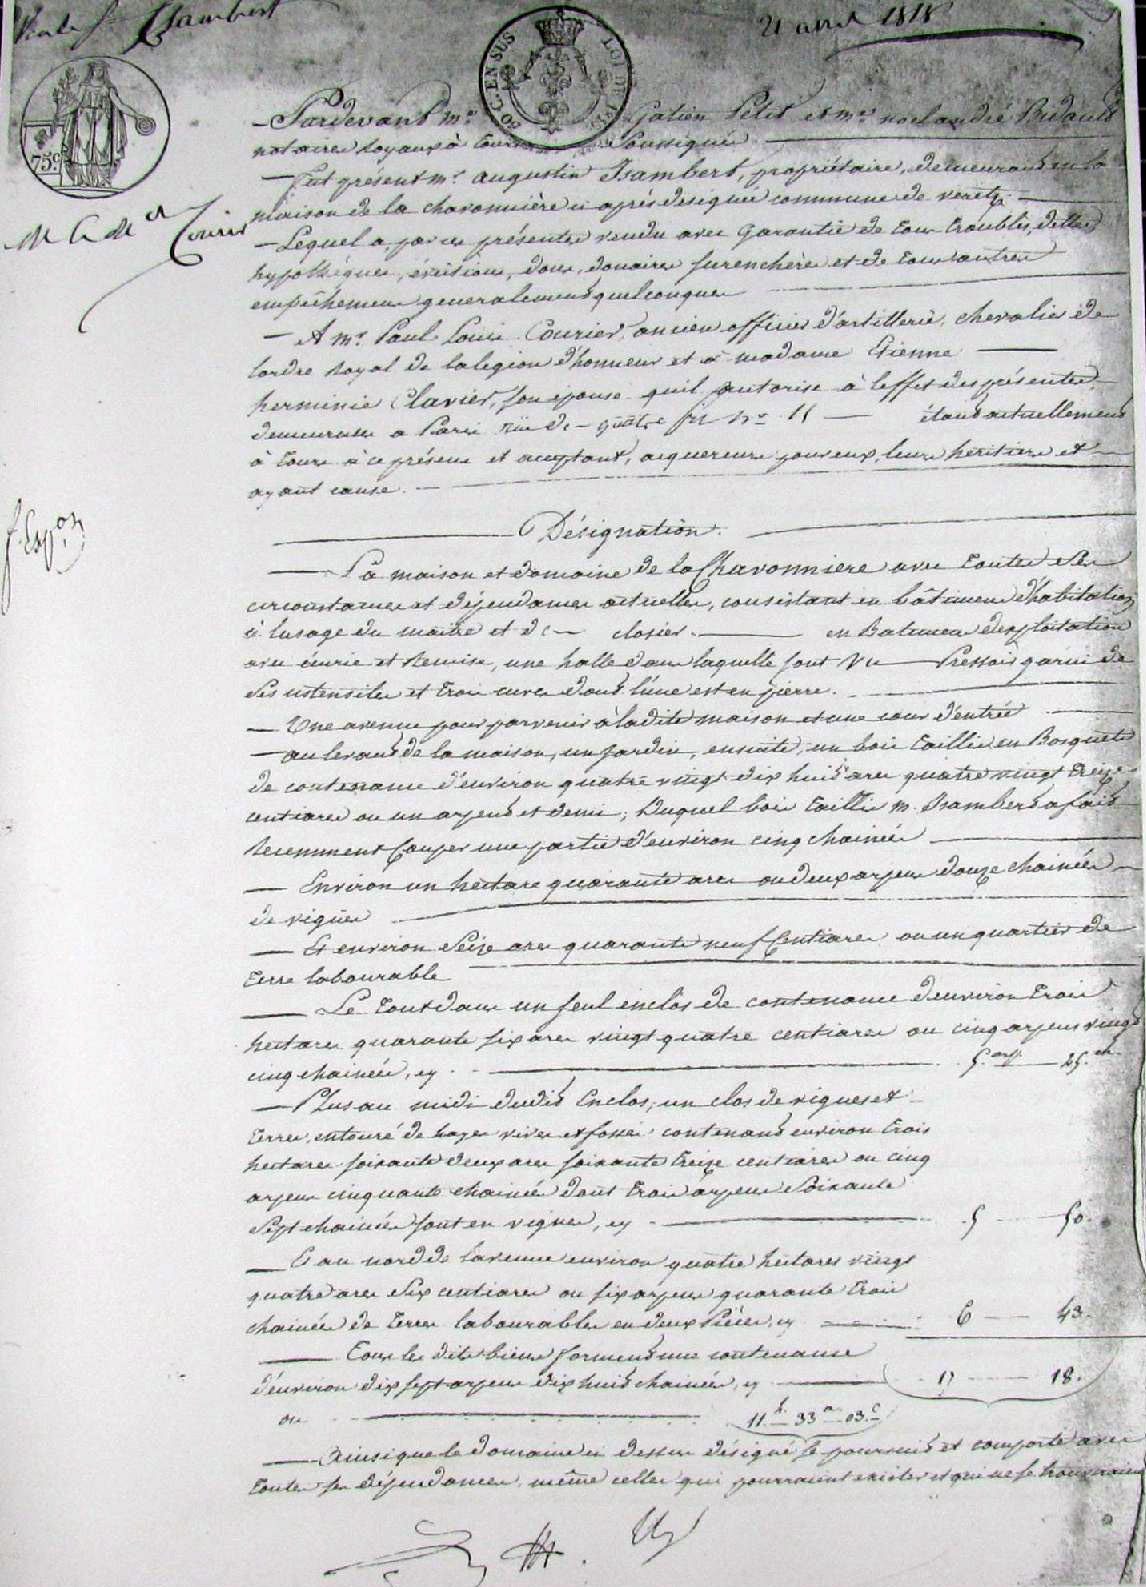 Vente pr Isambert
21 avril 1818
SOC. EN SUS
LOI DE
75c.
Pardevant Me Gatien Petit et Me noel andré Bidault
notaires royaux à Tours Soussignés
fut présent Mr augustin Isambert, propriétaire, demeurant en la
maison de la chavonnière ci après designée commune de veretz.
M. & Me Courier
Lequel a, par ces présentes vendu avec Garantie de tous troubles, dettes
hypothèques, évictions, dons, douaires surenchère et de tous autres
empêchemens generalement quelconques
A Mr Paul Louis Courier, ancien officier d'artillerie, chevalier de
lordre Royal de la legion d'honneur et à madame Etienne
herminie Clavier, son épouse quil autorise à leffet des présentes
demeurans a Paris rüe de quatre fils no 11 étant actuellement
à Tours à ce présens et acceptant, acquereurs pour eux, leurs héritiers et
ayant cause.
f. Expon
Désignation.
La maison et domaine de la Chavonniere avec toutes Ses
circonstances et dépendances actuelles, consistant en bâtimens d'habitation
à lusage du maitre et de closier. en Batimens d'exploitation
avec écurie et Remise, une halle dans laquelle sont Un Pressoir garni de
Ses ustensiles et trois cuves dont l'une est en pierre.
Une avenue pour parvenir à ladite maison et une cour d'entrée
au levant de la maison, un jardin, ensuite, un bois taillis en Bosquets
de contenance d'environ quatre vingt dix huit ares quatre vingt treize
centiares ou un arpent et demi; Duquel bois taillis M. Isambert a fait
Recemment Couper une partie d'environ cinq chainées
Environ un hectare quarante ares ou deux arpens douze chainées
de vignes
Et environ Seize ares quarante neuf Centiares ou un quartier de
terre labourable
Le tout dans un seul enclos de contenance d'environ trois
hectares quarante six ares vingt quatre centiares ou cinq arpens vingt
cinq chainées, cy 5. arp. 25. ch.
Plus au midi dudit Enclos, un clos de vignes et
terres, entouré de hayes vives et fossés contenant environ trois
hectares soixante deux ares soixante treize centiares ou cinq
arpens cinquante chainées dont trois arpens Soixante
Sept chainées sont en vignes, cy 5 50.
Et au nord de lavenue environ quatre hectares vingt
quatre ares Six centiares ou six arpens quarante trois
chainées de terres labourables en deux Pièces, cy 6 43.
Tous les dits biens forment une contenance
d'environ dix sept arpens dix huit chainées, cy 17 18.
ou 11.h 33a 03.c
Ainsi que le domaine ci dessus désigné se poursuit et comporte avec
toutes ses dépendances, même celles qui pourraient exister et qui ne se trouveraient